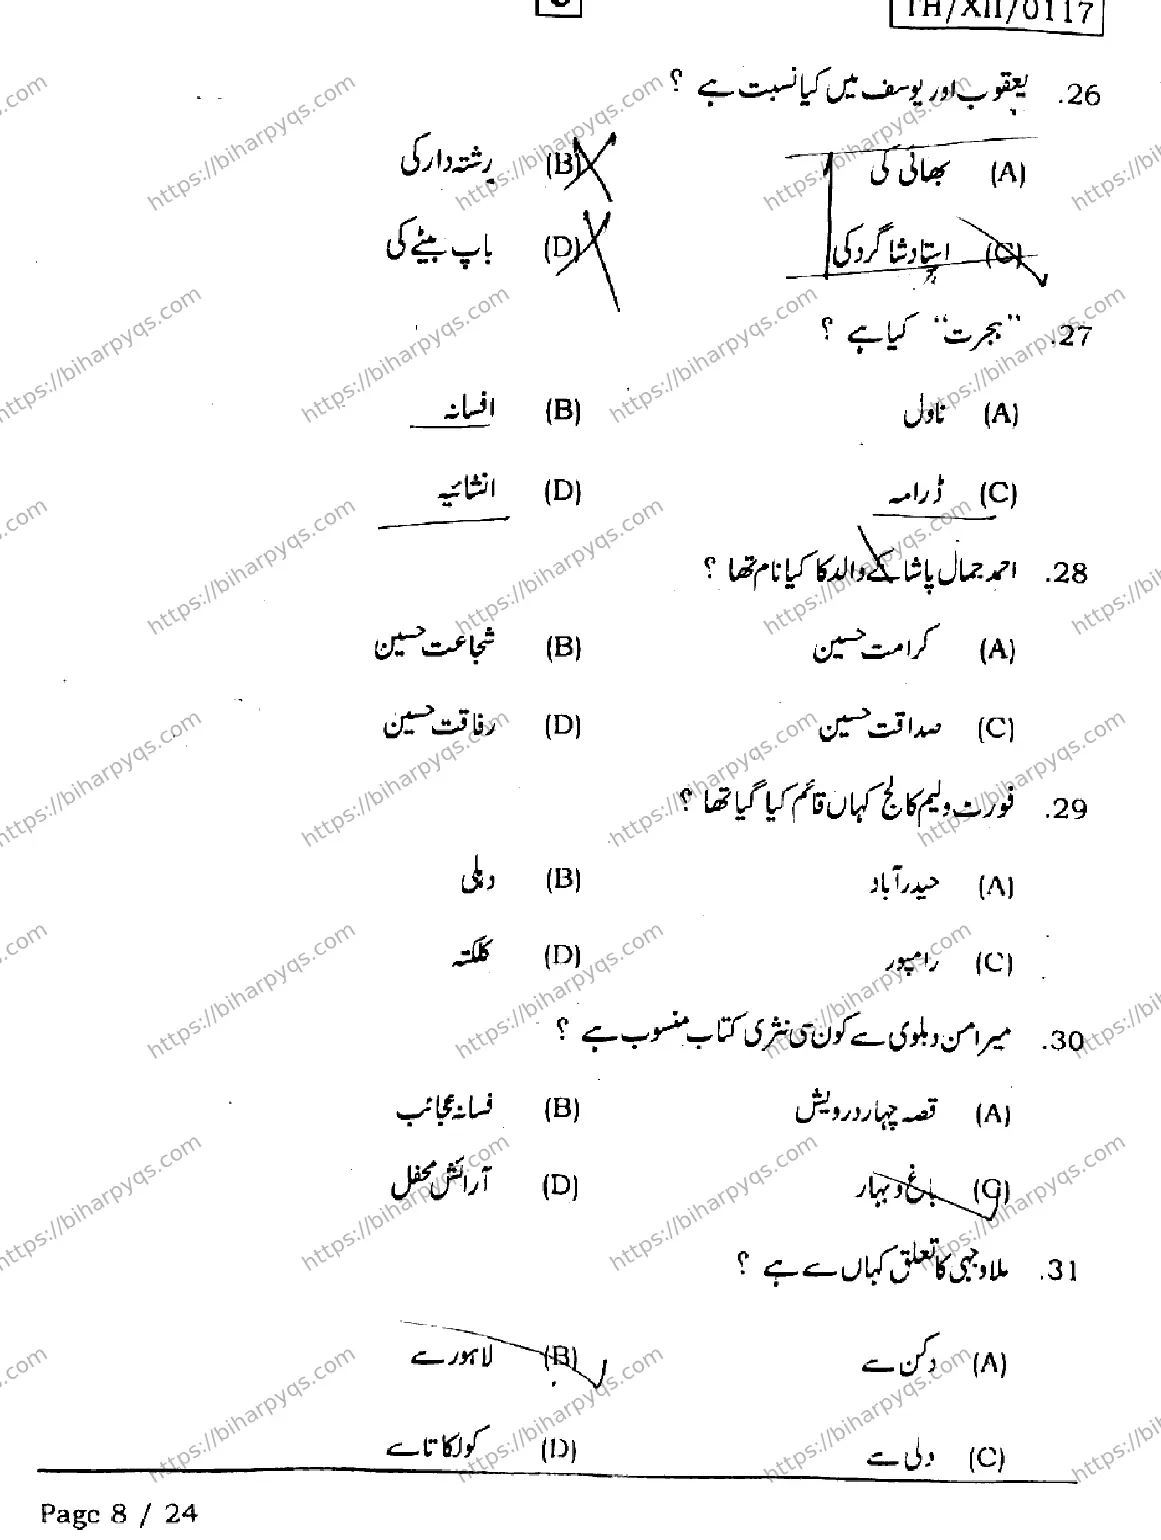 TH/XII/0117
26. یعقوب اور یوسف میں کیا نسبت ہے ؟
(A) بھائی کی (B) رشتہ دار کی
(C) استاد شاگرد کی (D) باپ بیٹے کی
27. "ہجرت" کیا ہے ؟
(A) ناول (B) افسانہ
(C) ڈرامہ (D) انشائیہ
28. احمد جمال پاشا کے والد کا کیا نام تھا ؟
(A) کرامت حسین (B) شجاعت حسین
(C) صداقت حسین (D) رفاقت حسین
29. فورٹ ولیم کالج کہاں قائم کیا گیا تھا ؟
(A) حیدرآباد (B) دہلی
(C) رامپور (D) کلکتہ
30. میر امن دہلوی سے کون سی نثری کتاب منسوب ہے ؟
(A) قصہ چہار درویش (B) فسانہ عجائب
(C) باغ و بہار (D) آرائش محفل
31. ملا وجہی کا تعلق کہاں سے ہے ؟
(A) دکن سے (B) لاہور سے
(C) دلی سے (D) کولکاتا سے
Page 8 / 24
https://biharpyqs.com